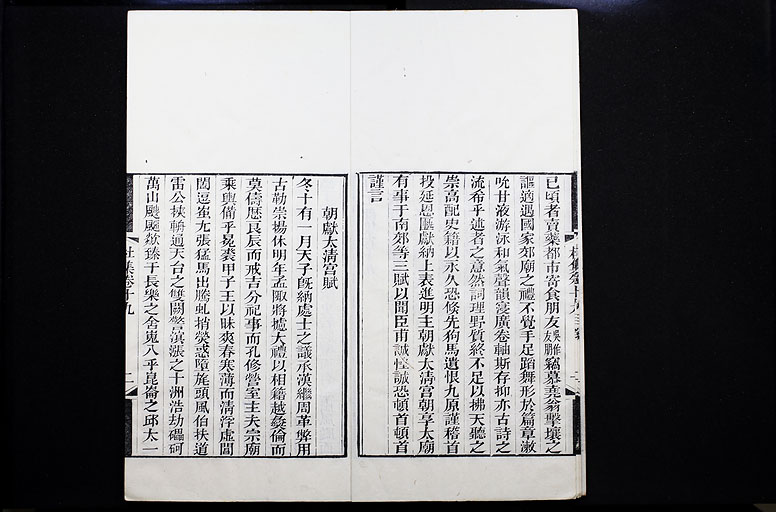 已頃者賣藥都市寄食朋友竊慕堯翁擊壤之
謳適遇國家郊廟之禮不覺手足蹈舞形於篇章漱
吮甘液游泳和氣聲韻寖廣卷軸斯存抑亦古詩之
流希乎述者之意然詞理野質終不足以拂天聽之
崇高配史籍以永久恐倏先狗馬遺恨九原謹稽首
投延恩匭獻納上表進明主朝獻太清宮朝享太廟
有事于南郊等三賦以聞臣甫誠惶誠恐頓首頓首
謹言
朝獻太清宮賦
冬十有一月天子旣納處士之議承漢繼周革弊用
古勒崇揚休明年孟陬將攄大禮以相籍越彝倫而
莫儔歷良辰而戒吉分祀事而孔修營室主夫宗廟
乘輿備乎冕裘甲子王以昧爽春寒薄而清浮虛閶
闔逗蚩尤張猛馬出騰虬捎熒惑墮旄頭風伯扶道
雷公挾輈通天台之雙闕警溟漲之十洲浩劫礧砢
萬山颼飀欻臻于長樂之舍嵬入乎崑崙之邱太一
杜集卷十九
二